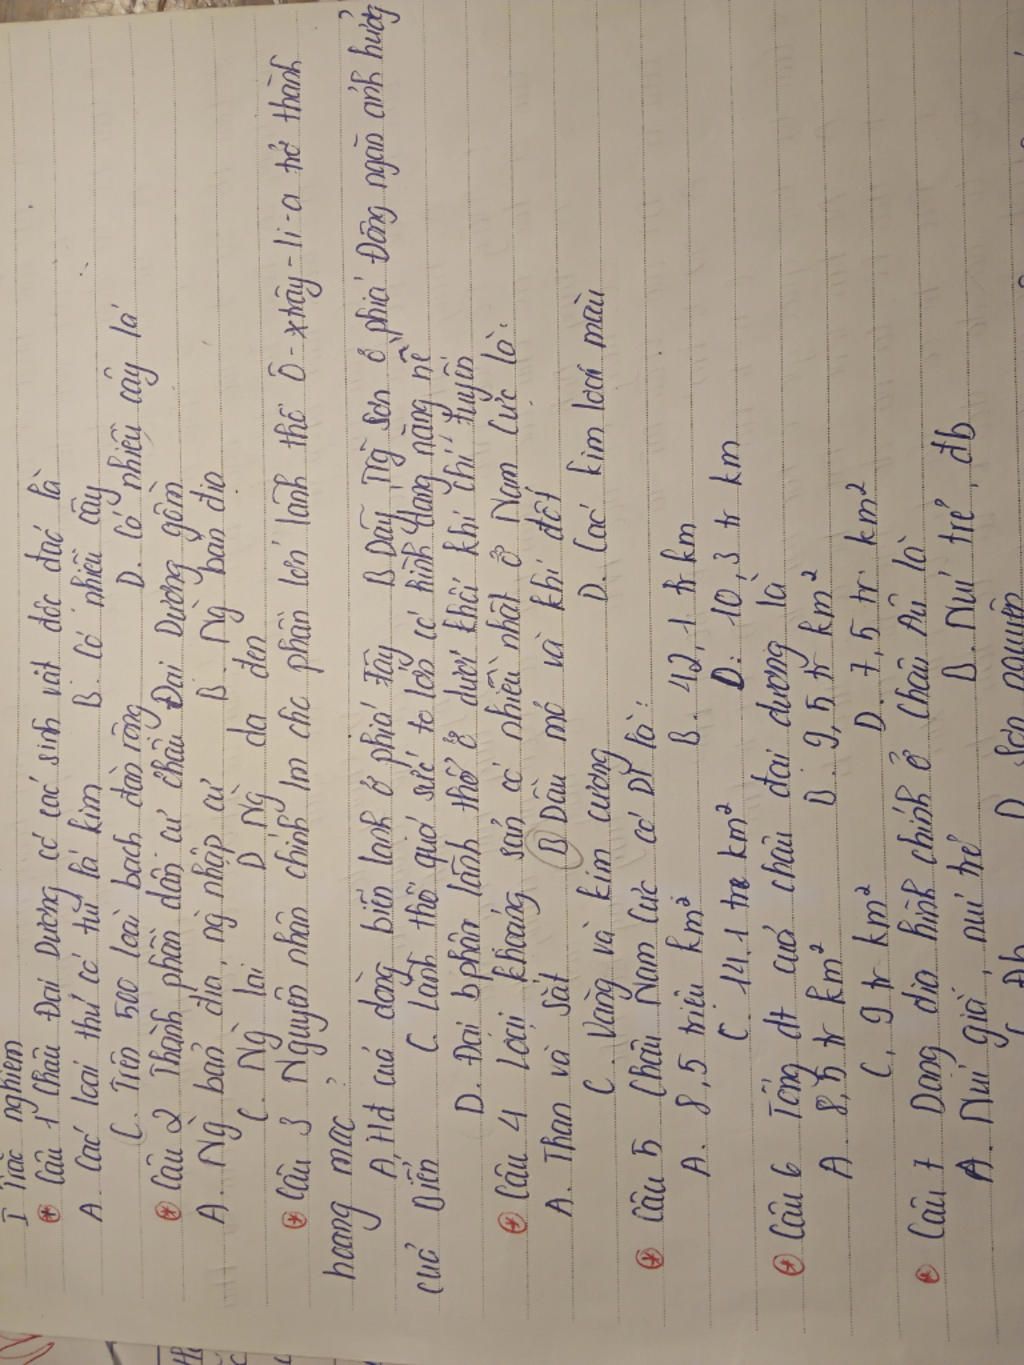 I Trắc nghiệm
Câu 1 Châu Đại Dương có các sinh vật độc đáo là
A. Các loài thú có túi lá kim B. Có nhiều cây
C. Trên 500 loài bạch đàn rộng D. Có nhiều cây lá
Câu 2 Thành phần dân cư châu Đại Dương gồm
A. Ng bản địa, ng nhập cư B. Ng bản địa
C. Ng lai D Ng da đen
Câu 3 Nguyên nhân chính lm cho phần lớn lãnh thổ Ô-xtrây-li-a trở thành
hoang mạc?
A, Hđ của dòng biển lạnh ở phía tây B Dãy Trg Sơn ở phía Đông ngăn ảnh hưởng
của biển C. Lãnh thổ quá sức to lớn có hình dạng nặng nề
D. Đại bphận lãnh thổ ở dưới khối khí chí tuyến
Câu 4 Loại khoáng sản có nhiều nhất ở Nam Cực là:
A. Than và sắt B Dầu mỏ và khí đốt
C. Vàng và kim cương D. Các kim loại màu
Câu 5 Châu Nam Cực có DT là:
A. 8,5 triệu km² B. 42,1 tr km
C. 14,1 tr km² D. 10,3 tr km
Câu 6 Tổng dt của châu đại dương là
A. 8,5 tr km² B. 9,5 tr km²
C, 9 tr km² D. 7,5 tr km²
Câu 7 Dạng địa hình chính ở Châu Âu là
A. Núi già, núi trẻ B. Núi trẻ, đb
C Đb D Sơn nguyên